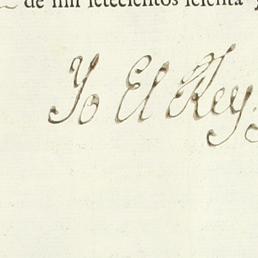 de mil ſetecientos ſeſenta y
Yo El Rey.